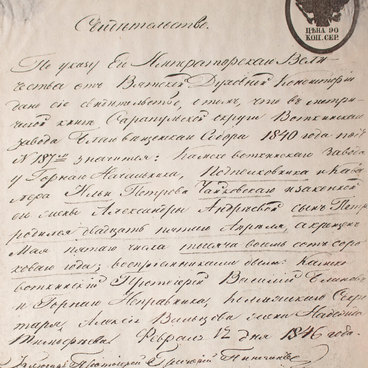 ЦѢНА 90
КОП. СЕР.
Свѣтительство.
По указу Его Императорскаго Вели-
чества отъ Вятской Духовной Консисторіи
дано сіе свидѣтельство, о томъ, что въ метри-
ческой книгѣ Сарапульской округи Воткинскаго
завода Благовѣщенскаго Собора 1840 года подъ
№ 187 значится: Камско воткинскаго завода
у Горнаго Начальника, Подполковника и Кава-
лера Ильи Петрова Чайковскаго и законной
его жены Александры Андреевой сынъ Петръ
родился двадцать пятаго Апрѣля, а крещенъ
Мая пятаго числа тысяча восемь сотъ соро-
коваго года; воспріемниками были: Камско
воткинскій Протоіерей Василій
и Горнаго Исправника, Коллежскаго Секре-
таря, Алексѣя Вальцова жена Надежда
Тимофеева. Февраля 12 дня 1846 года.
Протоіерей